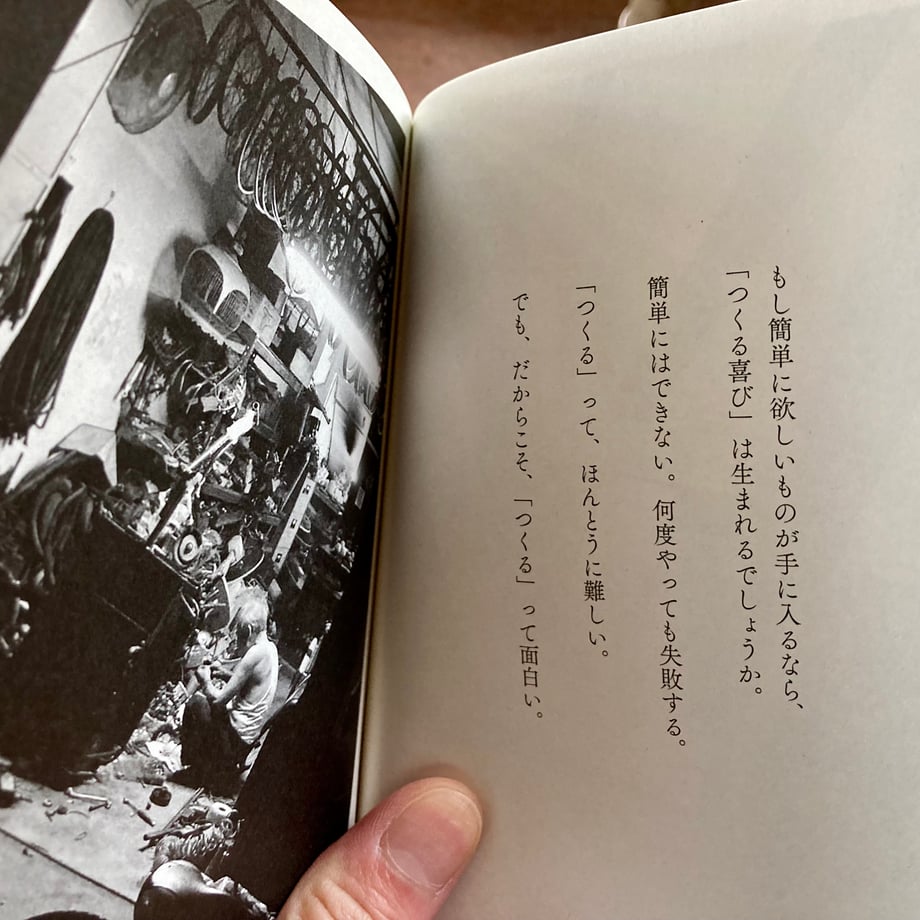 もし簡単に欲しいものが手に入るなら、
「つくる喜び」は生まれるでしょうか。
簡単にはできない。何度やっても失敗する。
「つくる」って、ほんとうに難しい。
でも、だからこそ、「つくる」って面白い。